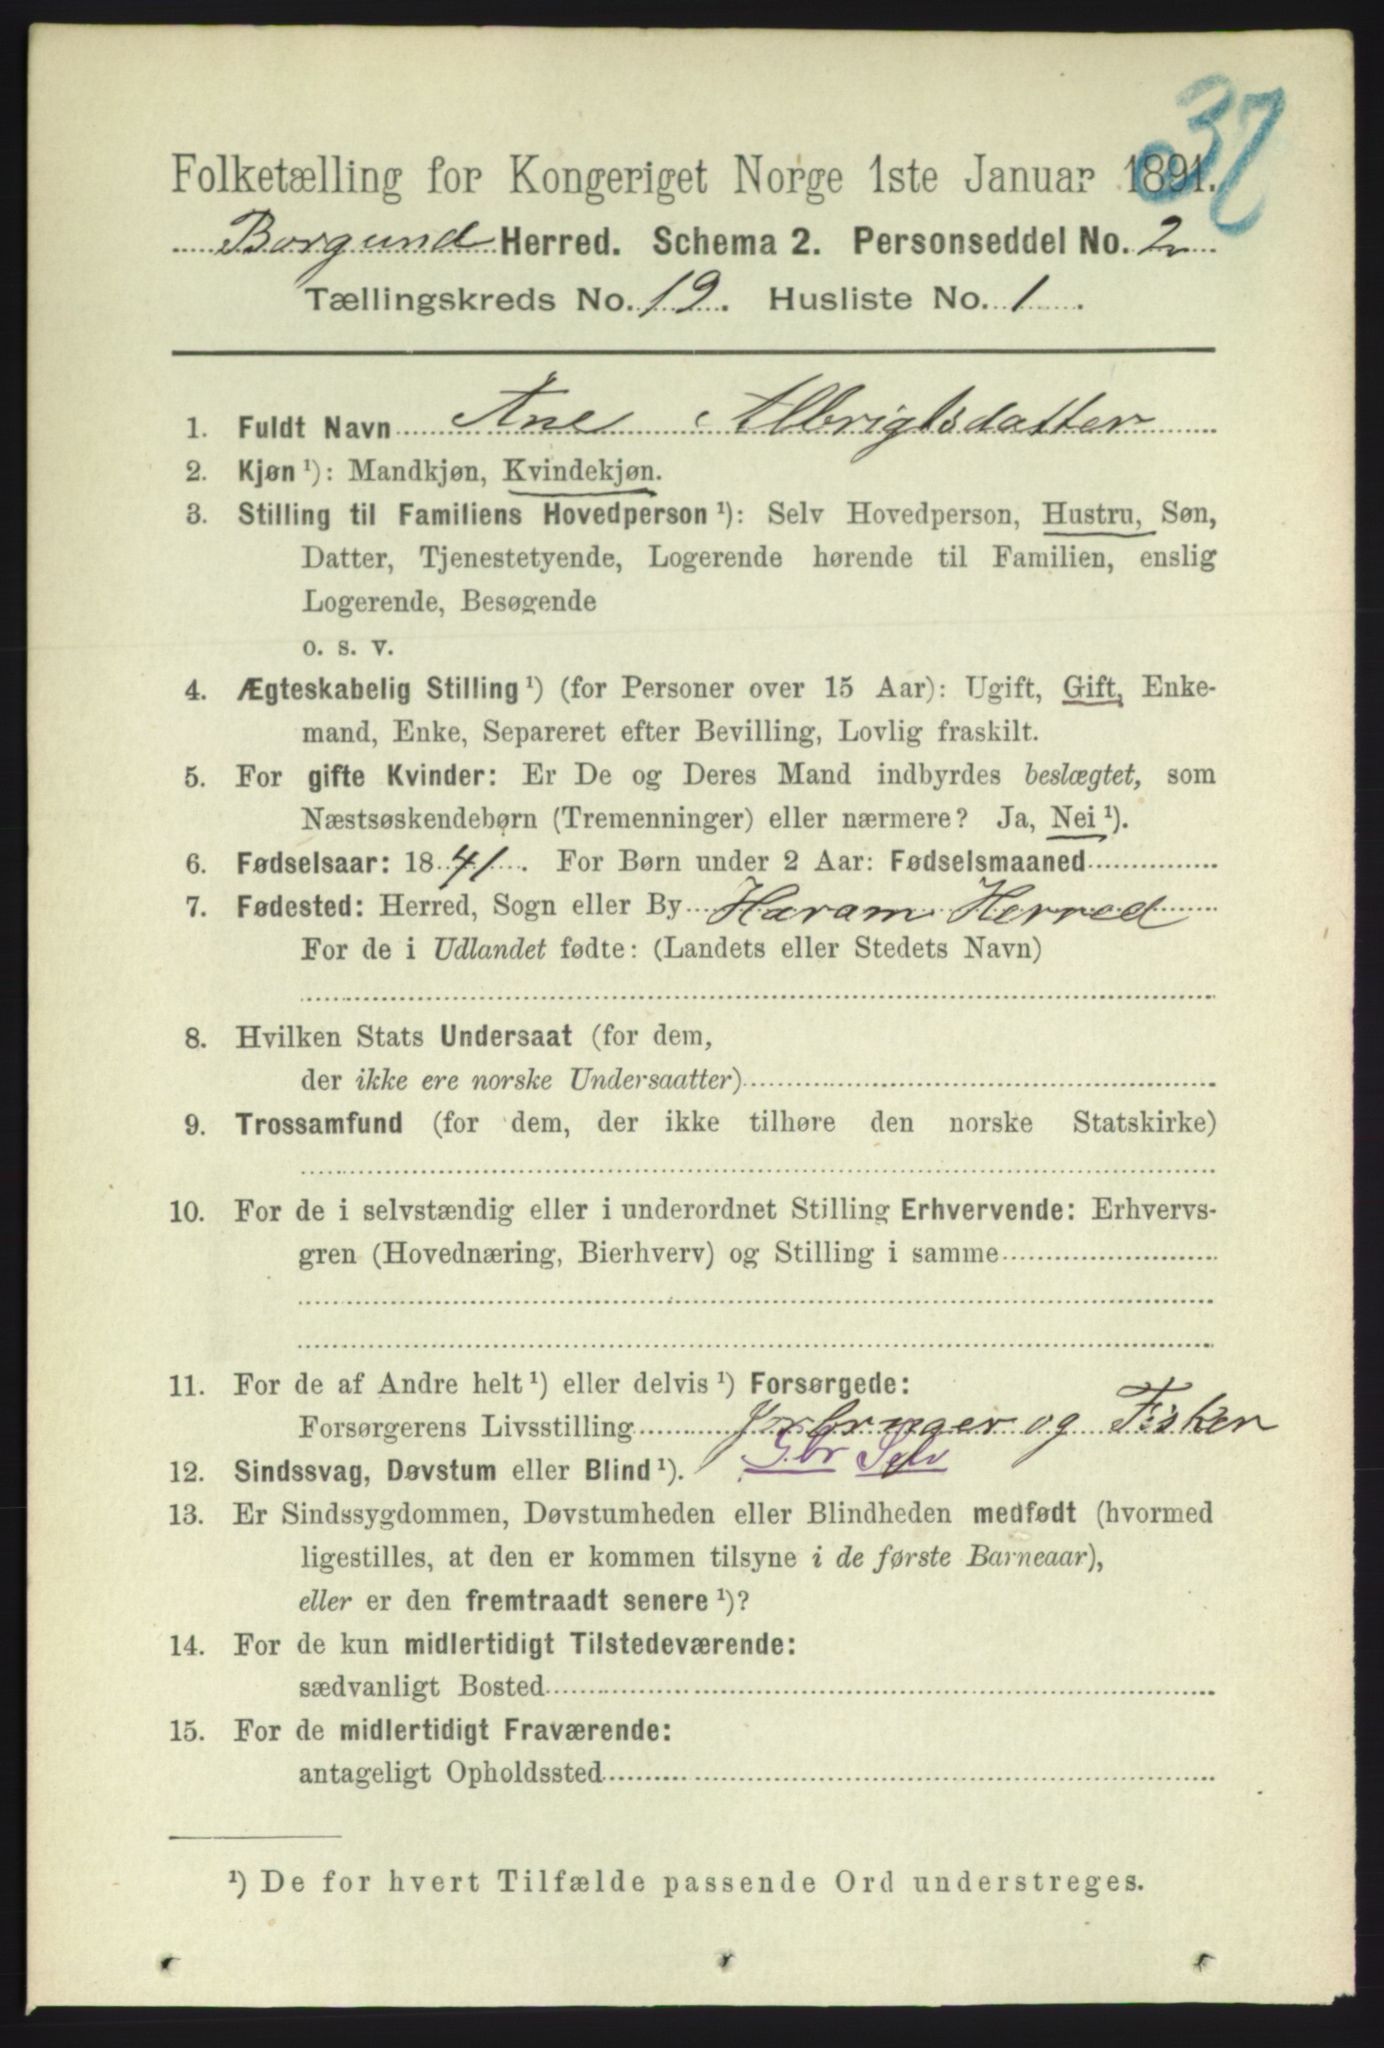 37
Folketælling for Kongeriget Norge 1ste Januar 1891.
Borgund Herred. Schema 2. Personseddel No. 2
Tællingskreds No. 19. Husliste No. 1.
1. Fuldt Navn Ane Albrigtsdatter
2. Kjøn ¹): Mandkjøn, Kvindekjøn.
3. Stilling til Familiens Hovedperson ¹): Selv Hovedperson, Hustru, Søn,
Datter, Tjenestetyende, Logerende hørende til Familien, enslig
Logerende, Besøgende
o. s. v.
4. Ægteskabelig Stilling ¹) (for Personer over 15 Aar): Ugift, Gift, Enke-
mand, Enke, Separeret efter Bevilling, Lovlig fraskilt.
5. For gifte Kvinder: Er De og Deres Mand indbyrdes beslægtet, som
Næstsøskendebørn (Tremenninger) eller nærmere? Ja, Nei ¹).
6. Fødselsaar: 1841. For Børn under 2 Aar: Fødselsmaaned
7. Fødested: Herred, Sogn eller By Haram Herred
For de i Udlandet fødte: (Landets eller Stedets Navn)
8. Hvilken Stats Undersaat (for dem,
der ikke ere norske Undersaatter)
9. Trossamfund (for dem, der ikke tilhøre den norske Statskirke)
10. For de i selvstændig eller i underordnet Stilling Erhvervende: Erhvervs-
gren (Hovednæring, Bierhverv) og Stilling i samme
11. For de af Andre helt ¹) eller delvis ¹) Forsørgede:
Forsørgerens Livsstilling Jorbruger og Fisker
Gbr Selv
12. Sindssvag, Døvstum eller Blind ¹).
13. Er Sindssygdommen, Døvstumheden eller Blindheden medfødt (hvormed
ligestilles, at den er kommen tilsyne i de første Barneaar),
eller er den fremtraadt senere ¹)?
14. For de kun midlertidigt Tilstedeværende:
sædvanligt Bosted
15. For de midlertidigt Fraværende:
antageligt Opholdssted
¹) De for hvert Tilfælde passende Ord understreges.